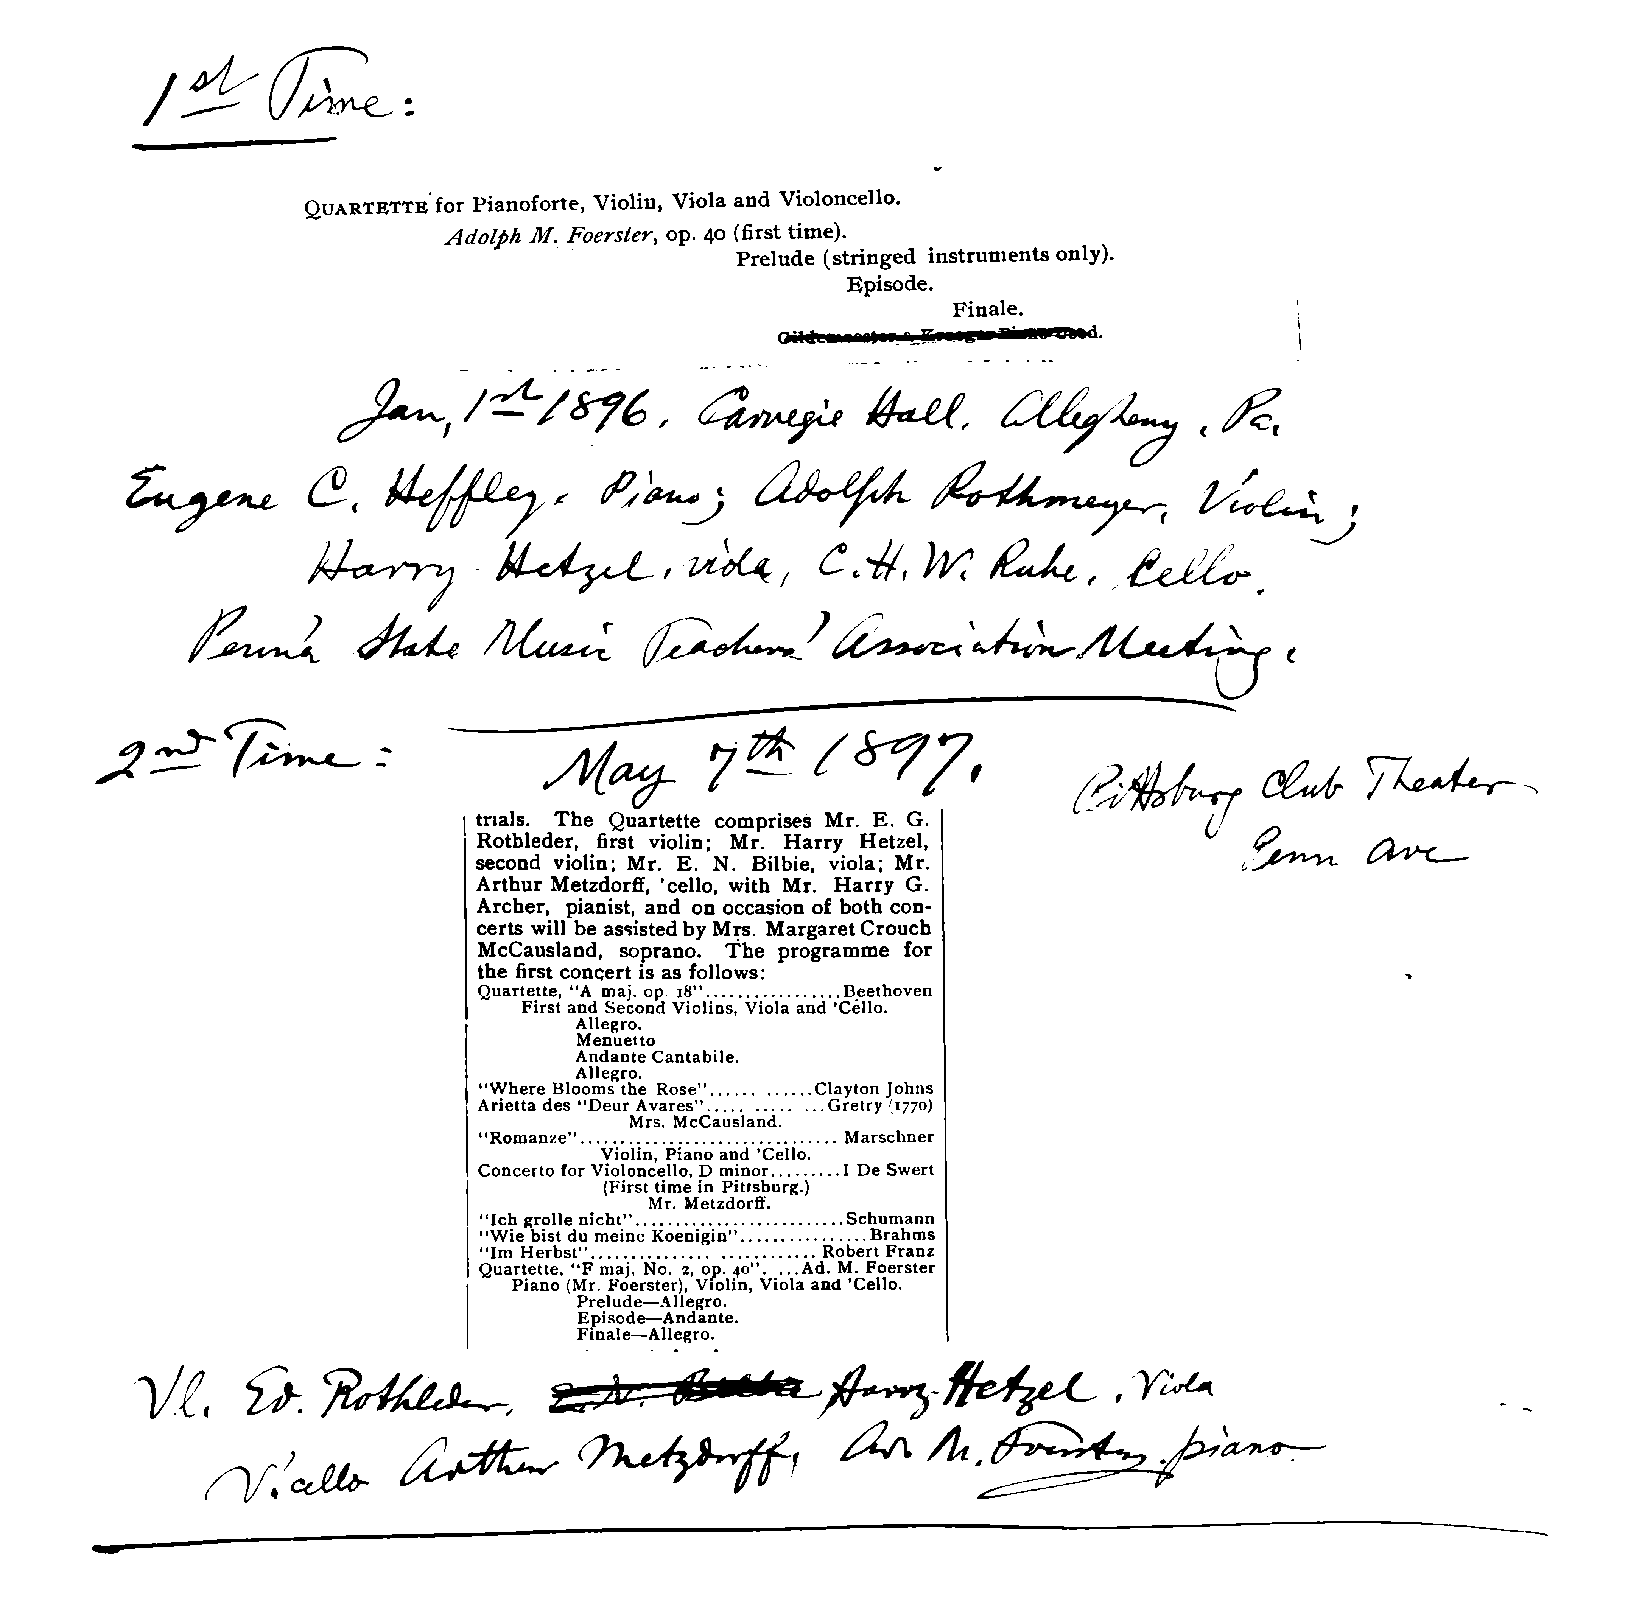 1st Time:
QUARTETTE for Pianoforte, Violin, Viola and Violoncello.
Adolph M. Foerster, op. 40 (first time).
Prelude (stringed instruments only).
Episode.
Finale.
Jan, 1st 1896. Carnegie Hall. Allegheny, Pa.
Eugene C. Heffley. Piano; Adolph Rothmeyer, Violin;
Harry Hetzel, viola, C.H.W. Ruhe, Cello.
Penn'a State Music Teachers' Association Meeting.
2nd Time:
May 7th 1897.
Pittsburg Club Theater
Penn Ave
trials. The Quartette comprises Mr. E. G.
Rothleder, first violin; Mr. Harry Hetzel,
second violin; Mr. E. N. Bilbie, viola; Mr.
Arthur Metzdorff, 'cello, with Mr. Harry G.
Archer, pianist, and on occasion of both con-
certs will be assisted by Mrs. Margaret Crouch
McCausland, soprano. The programme for
the first concert is as follows:
Quartette, "A maj. op. 18".................Beethoven
First and Second Violins, Viola and 'Cello.
Allegro.
Menuetto
Andante Cantabile.
Allegro.
"Where Blooms the Rose"...... ......Clayton Johns
Arietta des "Deur Avares"..... ..... ...Gretry (1770)
Mrs. McCausland.
"Romanze"................................ Marschner
Violin, Piano and 'Cello.
Concerto for Violoncello, D minor.........I De Swert
(First time in Pittsburg.)
Mr. Metzdorff.
"Ich grolle nicht"..........................Schumann
"Wie bist du meine Koenigin"................Brahms
"Im Herbst"............... ............ Robert Franz
Quartette, "F maj. No. 2, op. 40". ....Ad. M. Foerster
Piano (Mr. Foerster), Violin, Viola and 'Cello.
Prelude—Allegro.
Episode—Andante.
Finale—Allegro.
Vl. Ed. Rothleder, Harry Hetzel, Viola
V'cello Arthur Metzdorff, Ad. M. Foerster, piano